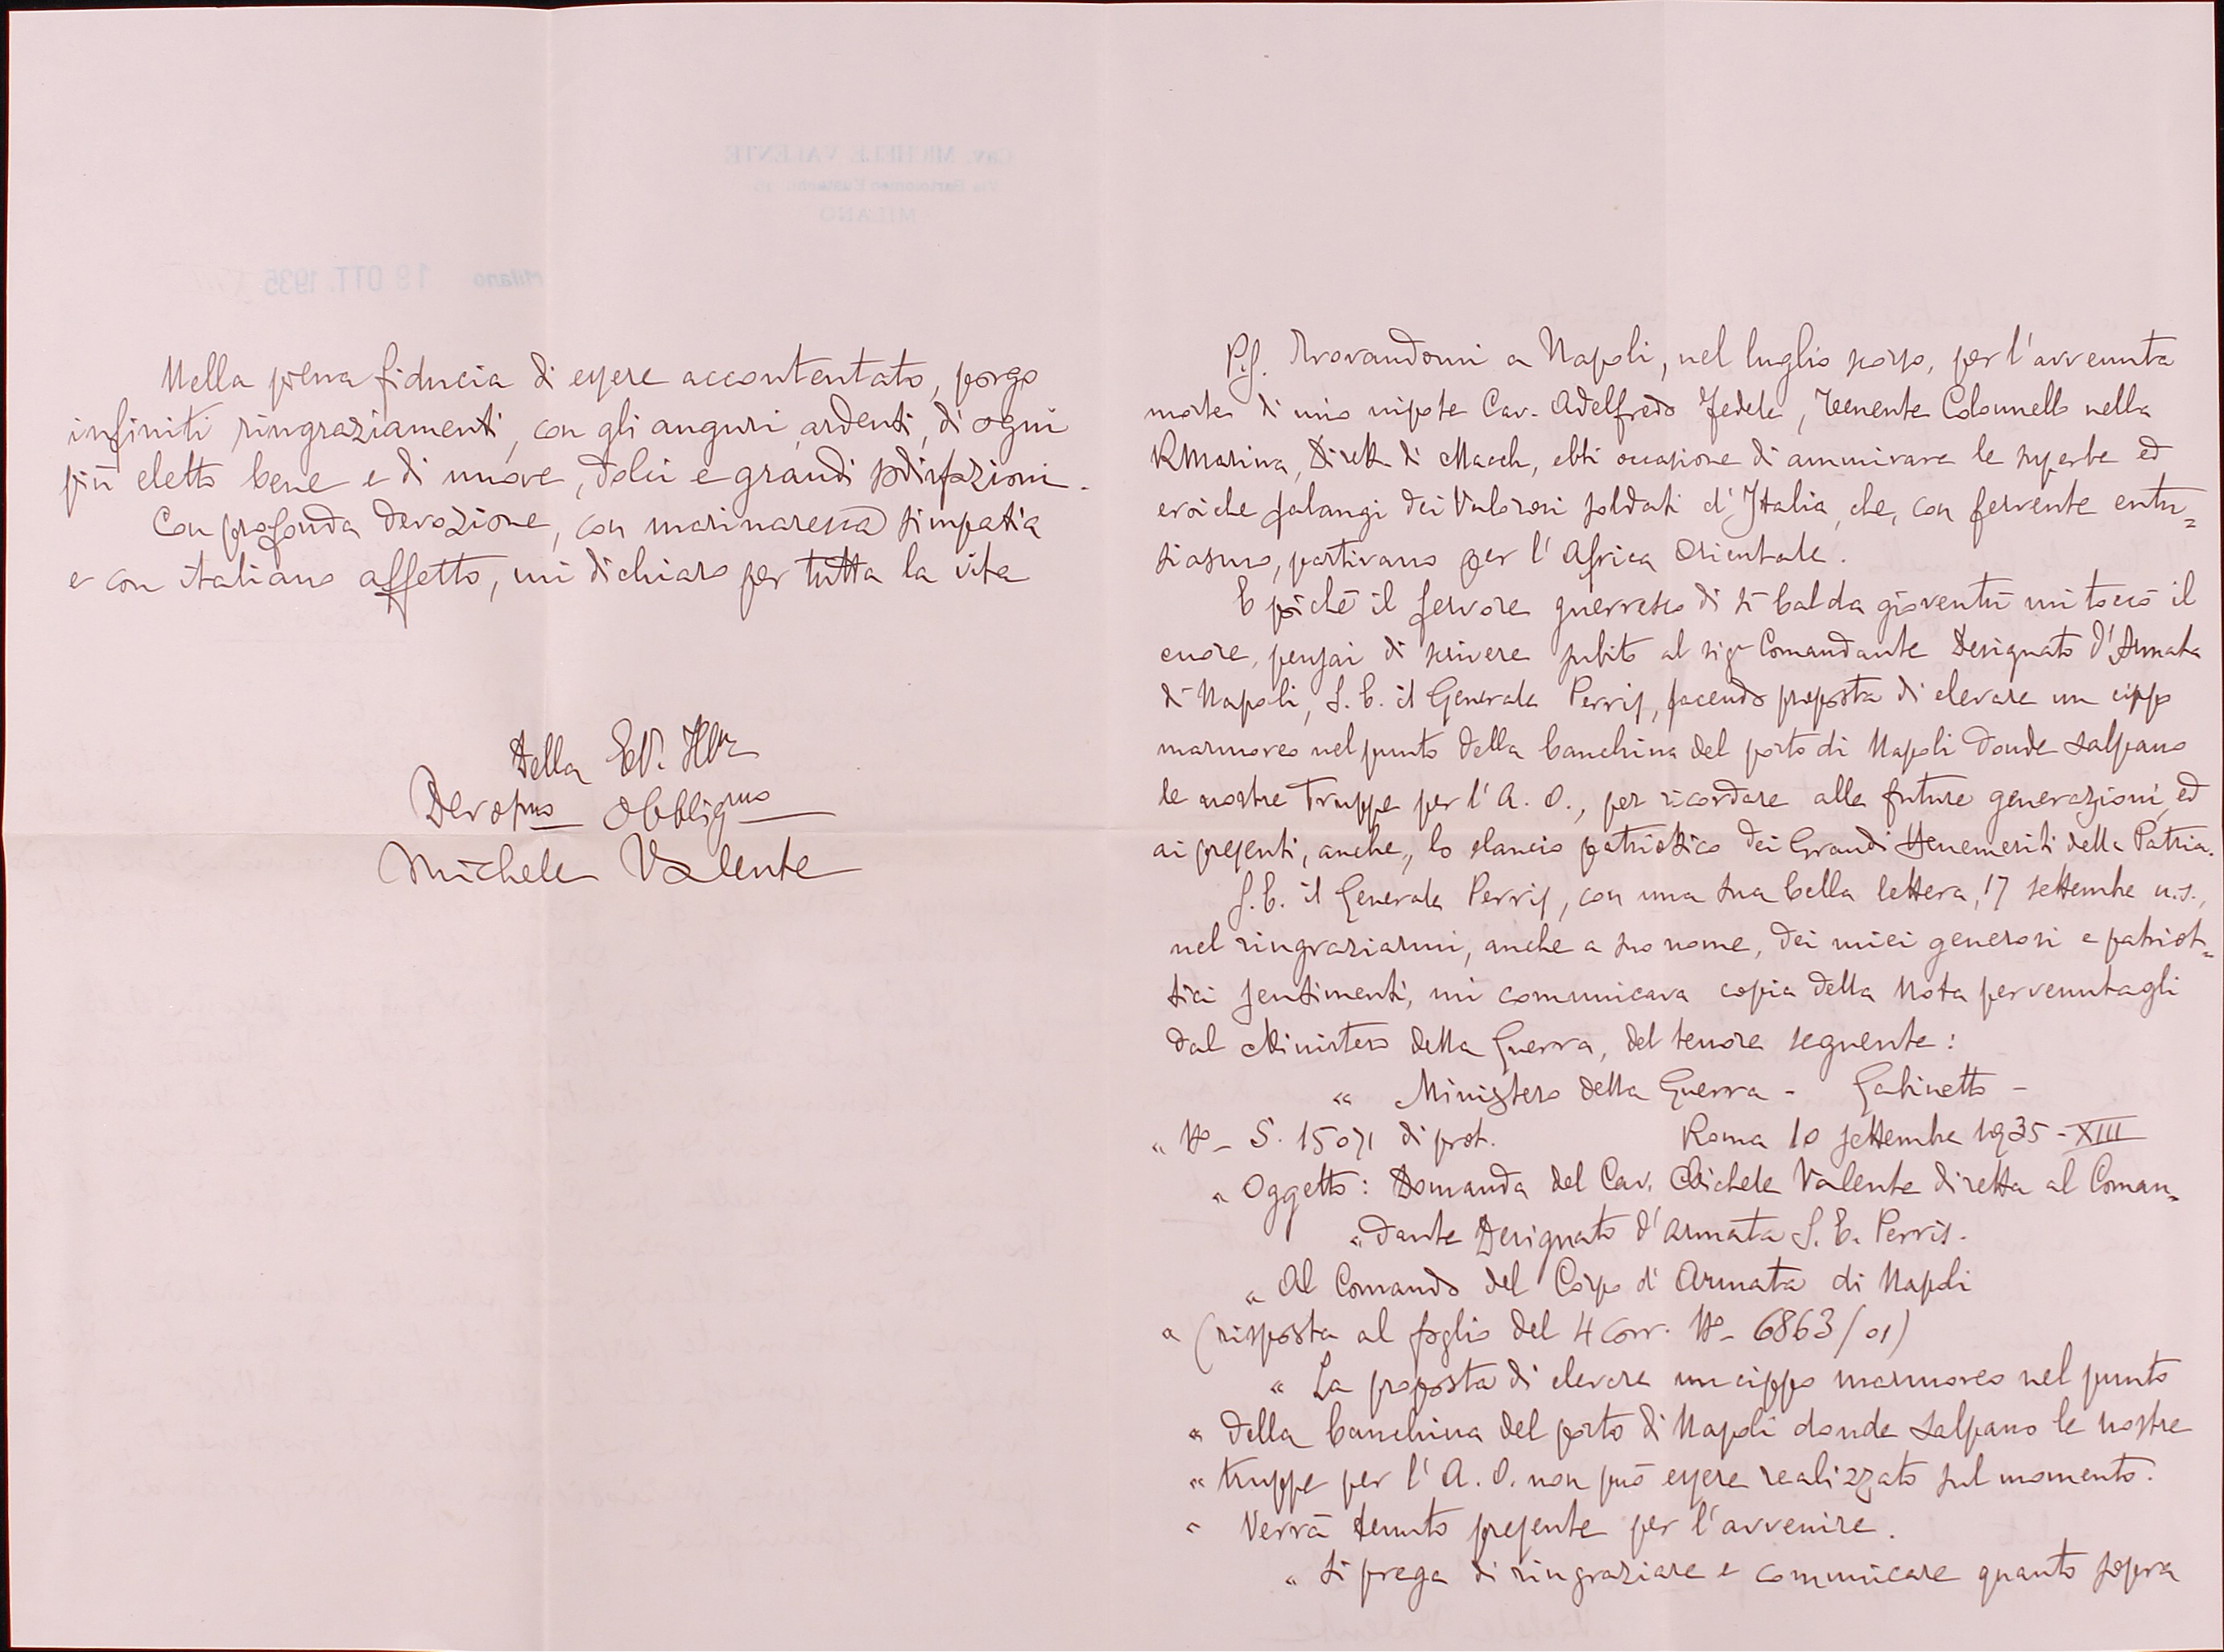 Nella piena fiducia di essere accontentato, porgo
infiniti ringraziamenti, con gli auguri ardenti, di ogni
più eletto bene e di nuove, dolci e grandi sodisfazioni.
Con profonda devozione, con marinaresca simpatia
e con italiano affetto, mi dichiaro per tutta la vita
Della E.V. Ill.ma
Devot.mo Obblig.mo
Michele Valente
Cav. MICHELE VALENTE
Via Bartolomeo Eustachi
MILANO
Milano 19 OTT. 1935
P.S. Trovandomi a Napoli, nel luglio scorso, per l'avvenuta
morte di mio nipote Cav. Adelfredo Fedele, Tenente Colonnello nella
R. Marina, Dirett. di Macch., ebbi occasione di ammirare le superbe ed
eroiche falangi dei Valorosi soldati d'Italia, che, con fervente entu=
siasmo, partivano per l'Africa Orientale.
E poichè il fervore guerresco di sì balda gioventù mi toccò il
cuore, pensai di scrivere subito al sig. Comandante Designato d'Armata
di Napoli, S. E. il Generale Perris, facendo proposta di elevare un cippo
marmoreo nel punto della banchina del porto di Napoli donde salpano
le nostre Truppe per l'A. O., per ricordare alle future generazioni, ed
ai presenti, anche, lo slancio patriottico dei Grandi Benemeriti della Patria.
S. E. il Generale Perris, con una sua bella lettera, 17 settembre u.s.,
nel ringraziarmi, anche a suo nome, dei miei generosi e patriot=
tici sentimenti, mi comunicava copia della Nota pervenutagli
dal Ministero della Guerra, del tenore seguente:
" Ministero della Guerra - Gabinetto -
" N°- S. 15071 di prot. Roma 10 settembre 1935 - XIII
" Oggetto: Domanda del Cav. Michele Valente diretta al Coman=
" dante Designato d'Armata S. E. Perris.
" Al Comando del Corpo d'Armata di Napoli
" (risposta al foglio del 4 corr. N°- 6863/01)
" La proposta di elevare un cippo marmoreo nel punto
" della banchina del porto di Napoli donde salpano le nostre
" truppe per l'A. O. non può essere realizzato sul momento.
" Verrà tenuto presente per l'avvenire.
" Si prega di ringraziare e comunicare quanto sopra